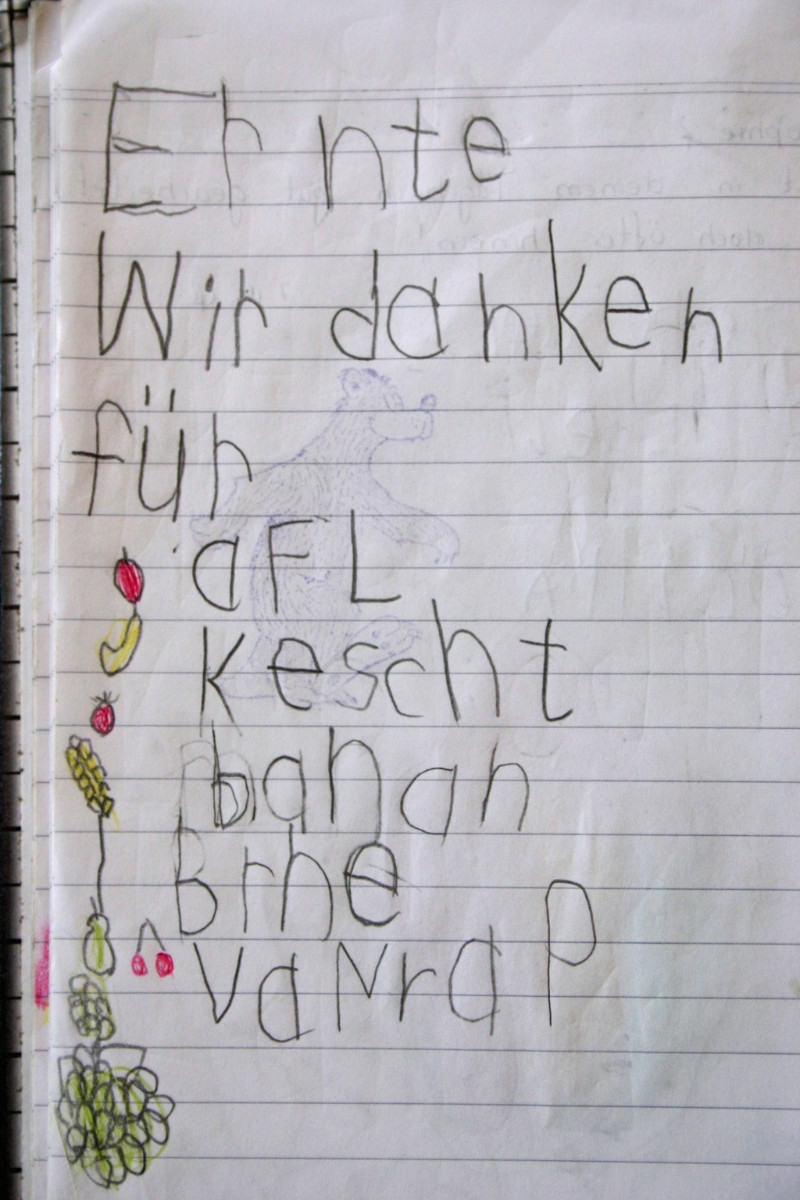 Ernte
Wir danken
für
aFL
kescht
banan
Brne
VaNraP